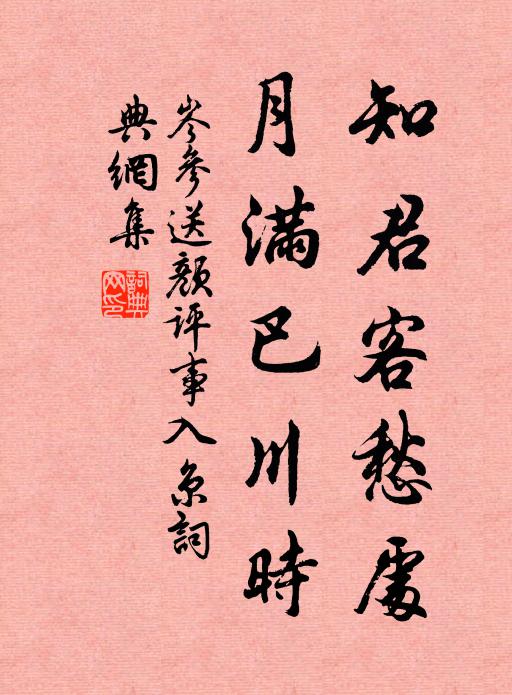 知君客愁處
月滿巴川時
岑參送顏評事入京詞
典網集
詞典网印